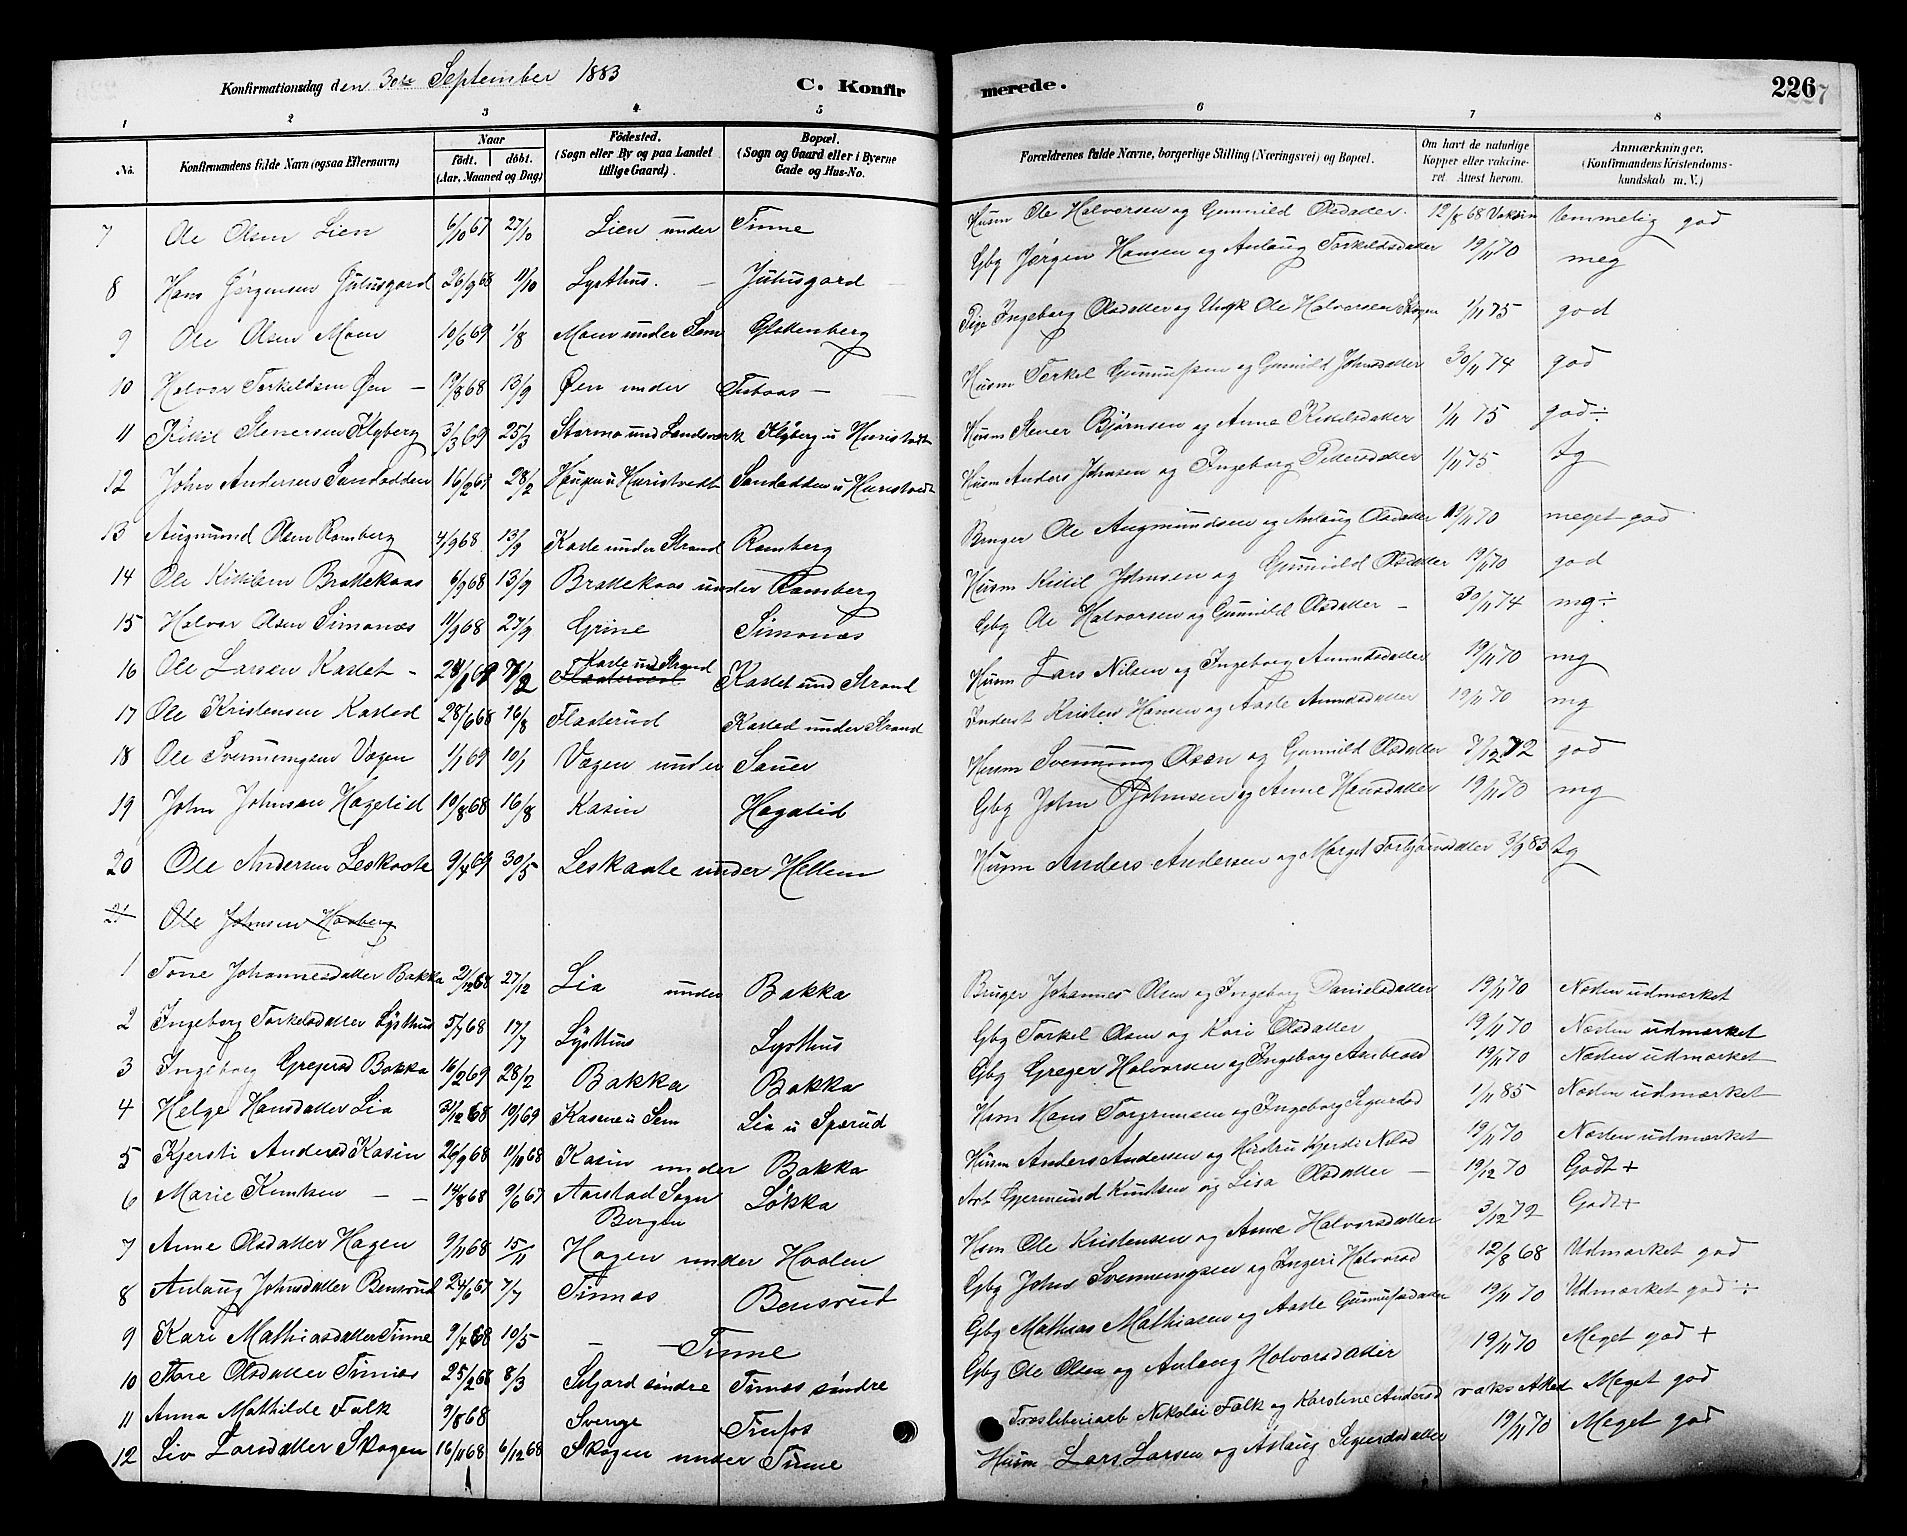 Konfirmationsdag den 30te September 1883 C. Konfir
merede. 226
1 2 3 4 5 6 7 8
No. Konfirmandens fulde Navn (ogsaa Efternavn) Naar født. døbt. (Aar, Maaned og Dag) Födested. (Sogn eller By og paa Landet tillige Gaard). Bopæl. (Sogn og Gaard eller i Byerne Gade og Hus-No. Forældrenes fulde Navne, borgerlige Stilling (Næringsvei) og Bopæl. Om havt de naturlige Kopper eller vaccineret. Attest herom. Anmærkninger. (Konfirmandens Kristendomskundskab m. V.)
7 Ole Olsen Lien 6/10 67 27/10 Lien under Tinne Husm Ole Halvorsen og Gunnild Olsdatter. 12/8 68 Vaksin temmelig god
8 Hans Jørgensen Jutusgard 26/9 68 11/10 Lysthus. — Jutusgard Gbg Jørgen Hansen og Anlaug Torkildsdatter 19/11 70 meg
9 Ole Olsen Moen 10/6 69 1/8 Moen under Sem Pige Ingeborg Olsdatter og Ungk Ole Halvorsen Skogen 1/11 75 god
10 Halvor Torkildsen Øen — 19/8 68 13/9 Øen under Husm Torkel Gunnufsen og Gunnild Johnsdatter 30/11 74 god
11 Kittil Stenersen Klyberg 3/3 69 25/3 Stormo und Landsverk Klyberg u Huristvedt Husm Stener Bjørnsen og Anne Kittilsdatter 1/11 75 god ÷
12 John Andersen Sandodden 16/2 67 28/2 u Huristvedt Sandodden u Huristvedt Husm Anders Johnsen og Ingeborg Pettersdatter 1/11 75 tg
13 Augmund Olsen Ramberg 4/9 68 13/9 Kaste under Strand Ramberg Bruger Ole Augmundsen og Anlaug Olsdatter 19/11 70 meget god
14 Ole Kittilsen Brattekaas 6/9 68 13/9 Brattekaas under Ramberg Husm Kittil Johnsen og Gunnild Olsdatter 19/11 70 god
15 Halvor Olsen Simonæs 11/9 68 27/9 Grine Simonæs Gbg Ole Halvorsen og Gunnild Olsdatter — 30/11 74 mg ÷
16 Ole Larsen Kastet — Kaste und Strand Kastet und Strand Husm Lars Nilsen og Ingeborg Amundsdatter 19/11 70 mg
17 Ole Kristensen Kastad 28/6 68 16/8 Flaaterud Kastad under Strand Inderst Kristen Hansen og Aaste Amundsdatter 19/11 70 mg
18 Ole Svennungsen Vægen 1/1 69 10/1 Vægen under Sauer Husm Svennung Olsen og Gunnild Olsdatter 72 god
19 John Johnsen Hagelid 10/8 68 16/8 Kasin Hagalid Gbg John Johnsen og Anne Hansdatter 19/11 70 mg
20 Ole Andersen Leskaate 9/4 69 30/5 Leskaate under Hellem Husm Anders Andersen og Marget Torbjørnsdatter 3/9 83 tg
21 Ole Johnsen Haaberg
1 Tone Johannesdatter Bakka 2/12 68 27/12 Lia under Bakka Bruger Johannes Olsen og Ingeborg Danielsdatter 19/11 70 Næsten udmærket
2 Ingeborg Torkelsdatter Lysthus 5/7 68 17/7 Lysthus Lysthus Gbg Torkel Olsen og Kari Olsdatter 19/11 70 Næsten udmærket
3 Ingeborg Gregersd Bakka 16/2 69 28/2 Bakka Bakka Gbg Greger Halvorsen og Ingeborg 19/11 70 Næsten udmærket
4 Helge Hansdatter Lia 31/12 68 10/1 69 Kasene u Sem Lia u Sperud Hsm Hans Torgrimsen og Ingeborg Sigurdsd 1/11 85 Næsten udmærket
5 Kjersti Andersd Kasin 26/9 68 11/10 68 Kasin under Bakka Husm Anders Andersen og Hustru Kjersti Nilsd 19/11 70 Næsten udmærket
6 Marie Knutsen — — 14/8 68 9/6 67 Aarstad Sogn Bergen Løkka Arb Gjermund Knutsen og Lisa Olsdatter — 19/12 70 Godt +
7 Anne Olsdatter Hagen 9/11 68 15/11 Hagen under Hoolen Hsm Ole Kristensen og Anne Halvorsdatter 3/12 72 Godt +
8 Anlaug Johnsdatter Bensrud 24/6 67 7/7 Tinnæs Bensrud Gbg John Svennungsen og Ingeri Halvorsd 12/8 68 Udmærket god
9 Kari Mathiasdatter Tinne 9/4 68 10/5 — — Tinne Gbg Mathias Mathiasen og Aaste Gunnufsdatter 19/11 70 Udmærket god ÷
10 Tore Olsdatter Tinnæs 25/2 68 8/3 Seljord søndre Tinnæs søndre Gbg Ole Olsen og Anlaug Halvorsdatter 19/11 70 Meget god +
11 Anna Mathilde Falk 9/8 68 Sverige Tinfos Træsliberiarb Nikolai Falk og Karoline Andersd vaks Attest Meget god
12 Liv Larsdatter Skogen 16/11 68 6/12 68 Skogen under Tinne Husm Lars Larsen og Aslaug Sigurdsdatter 19/11 70 Meget god